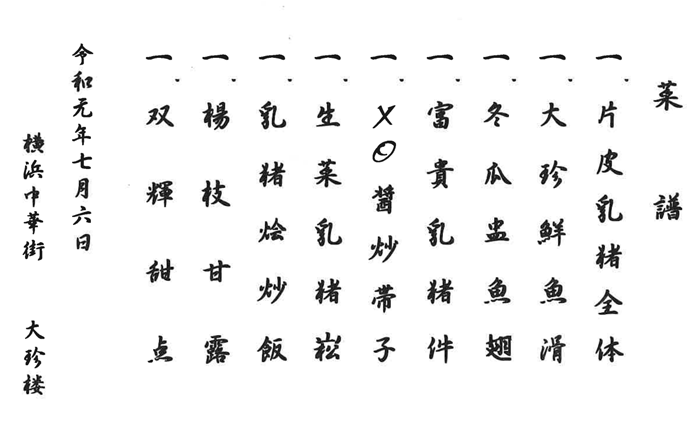 菜譜
一、片皮乳猪全体
一、大珍鮮魚滑
一、冬瓜盅魚翅
一、富貴乳猪件
一、XO醤炒帯子
一、生菜乳猪崧
一、乳猪烩炒飯
一、楊枝甘露
一、双輝甜点
令和元年七月六日
横浜中華街 大珍楼